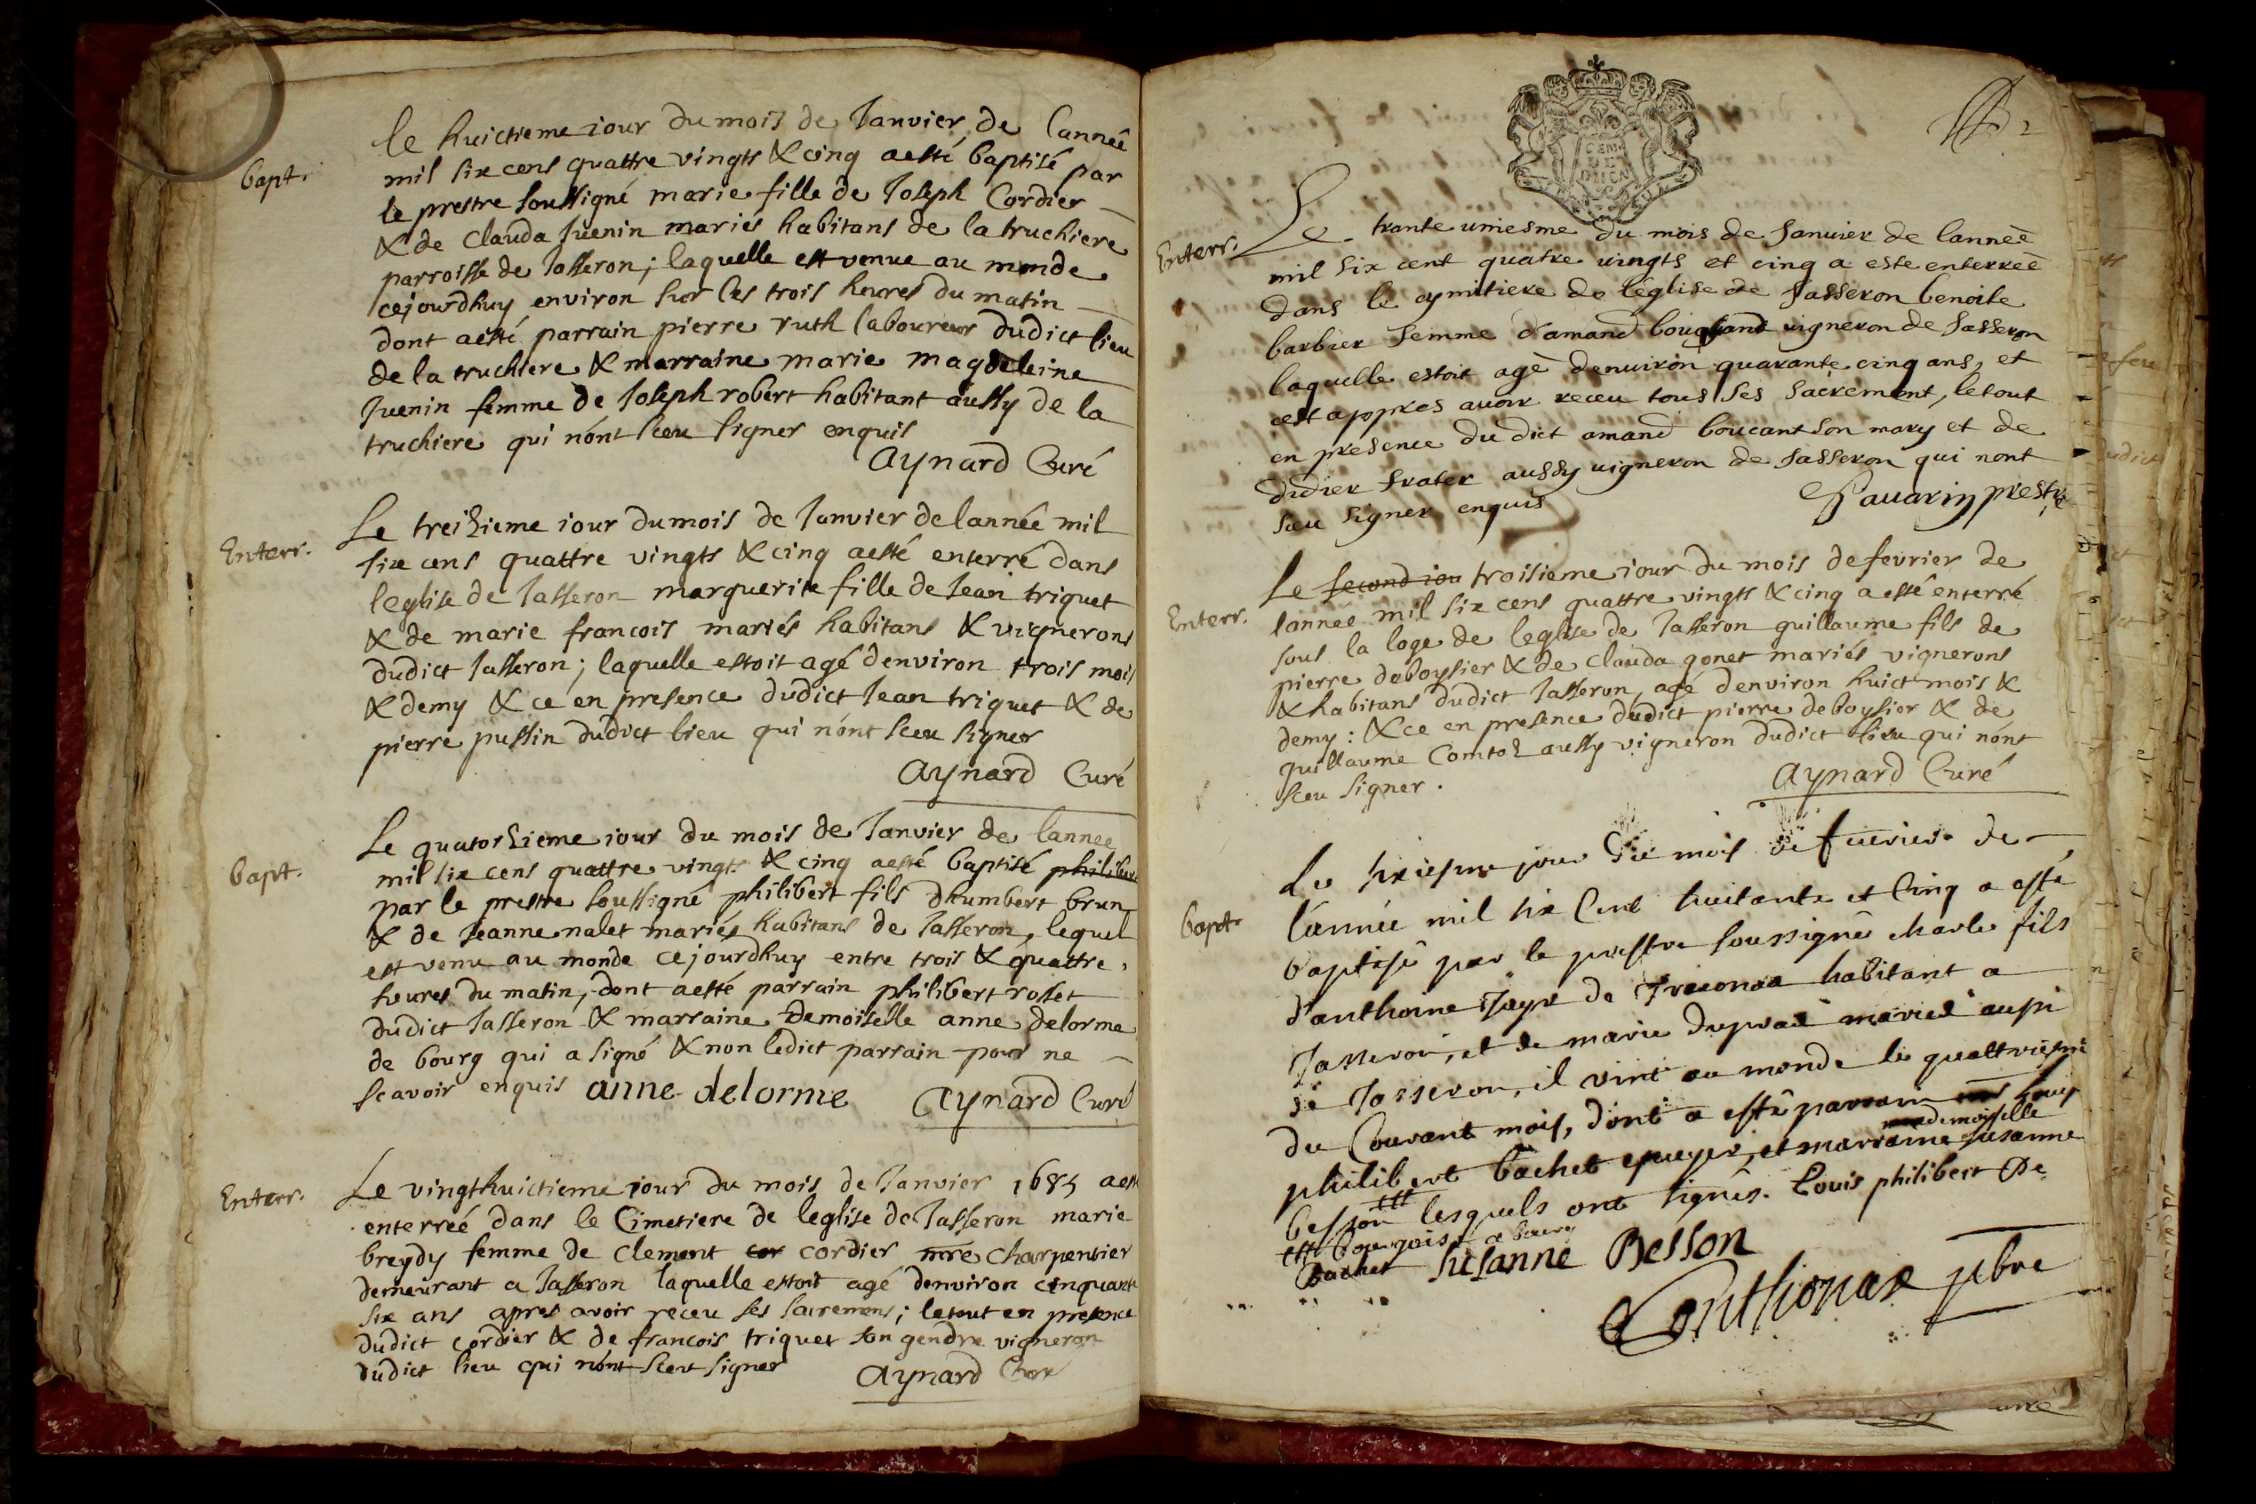 Bapt.
le huictieme iour du mois de Janvier de l'année
mil six cens quattre vingts & cinq aesté baptisé par
le prestre soussigné marie fille de Joseph Cordier
& de Clauda Juenin mariés habitans de la truchiere
parroisse de Jasseron ; laquelle est venue au monde
cejourdhuy environ sur les trois heures du matin
dont aesté parrain pierre ruth laboureur dudict lieu
de la truchiere & marraine marie magdeleine
Juenin femme de Joseph robert habitant aussy de la
truchiere qui n'ont sceu signer enquis
Aynard Curé
Enterr.
Le treizieme iour du mois de Janvier de lannée mil
six cens quattre vingts & cinq aesté enterré dans
leglise de Jasseron marguerite fille de Jean triquet
& de marie francois mariés habitans & vignerons
dudict Jasseron ; laquelle estoit agé denviron trois mois
& demy & ce en presence dudict Jean triquet & de
pierre pussin dudict lieu qui n'ont sceu signer
Aynard Curé
Bapt.
Le quatorzieme iour du mois de Janvier de lannee
mil six cens quattre vingts & cinq aesté baptisé philibert
par le prestre soussigné philibert fils dhumbert brun
& de Jeanne nalet mariés habitans de Jasseron, lequel
est venu au monde cejourdhuy entre trois & quattre
heures du matin, dont aesté parrain philibert rosset
dudict Jasseron & marraine Demoiselle anne delorme
de bourg qui a signé & non ledict parrain pour ne
scavoir enquis anne delorme Aynard Curé
Enterr.
Le vingthuictieme iour du mois de Janvier 1685 aesté
enterreé dans le Cimetiere de leglise de Jasseron marie
breydy femme de Clement cor cordier mre charpentier
demeurant a Jasseron laquelle estoit agé denviron cinquante
six ans apres avoir receu ses sacremens ; letout en presence
dudict cordier & de francois triquet son gendre vigneron
dudict lieu qui n'ont sceu signer
Aynard Curé
2
GEN
DE
Enterr.
Le trante uniesme du mois de Januier de lanneè
mil six cent quatre uingts et cinq a este enterreè
dans le cymitiere de léglise de Jasseron benoite
barbier femme d'amand bouquand uigneron de Jasseron
laquelle estoit agè denuiron quarante cinq ans, et
cest appres auoir receu tous ses sacrement, letout
en presence du dict amand boucant son mary et de
didier frater aussy uigneron de Jasseron qui nont
sceu signer enquis
Pauarin prestre
Enterr.
Le second iou troisieme iour du mois de fevrier de
lannée mil six cens quattre vingts & cinq a esté enterré
sous la loge de leglise de Jasseron guillaume fils de
pierre deboysier & de Clauda gonet mariés vignerons
& habitans dudict Jasseron, agé denviron huict mois &
demy : & ce en presence dudict pierre deboysier & de
guillaume Comtoz aussy vigneron dudict lieu qui n'ont
sceu signer .
Aynard Curé
Bapt.
Le sixiesme jour du mois de feurier de
l'année mil six Cent huitante et Cinq a esté
baptisé par le prestre soussigné charle fils
d'anthoine Jayr de treconas habitant a
Jasseron, et de marie dupras mariés aussi
de Jasseron, il vint au monde le quattriesme
du Courant mois, dont a esté parrain louys
demoiselle
philibert bachet escuyer, et marraine susanne
besson lesquels ont signés. Louis philibert De
bourgoise a bourg
Bachet Susanne Besson
Conthonax pbre